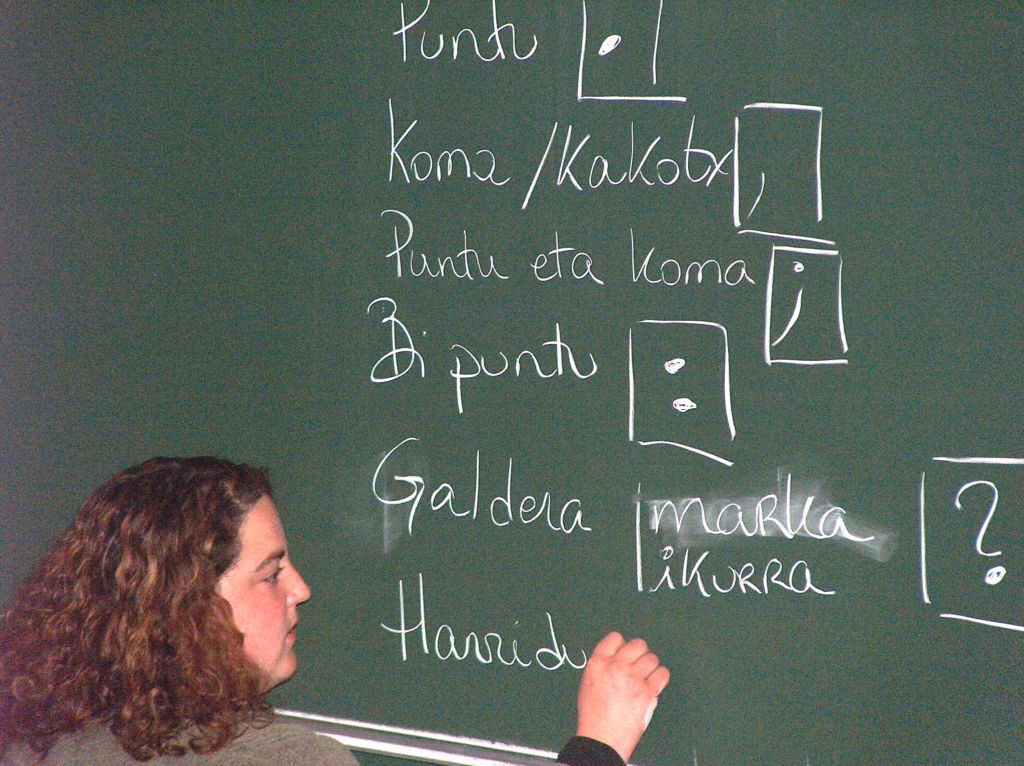 Puntu .
Koma / Kakotx ,
Puntu eta koma ;
Bi puntu :
Galdera marka ?
ikurra
Harridu